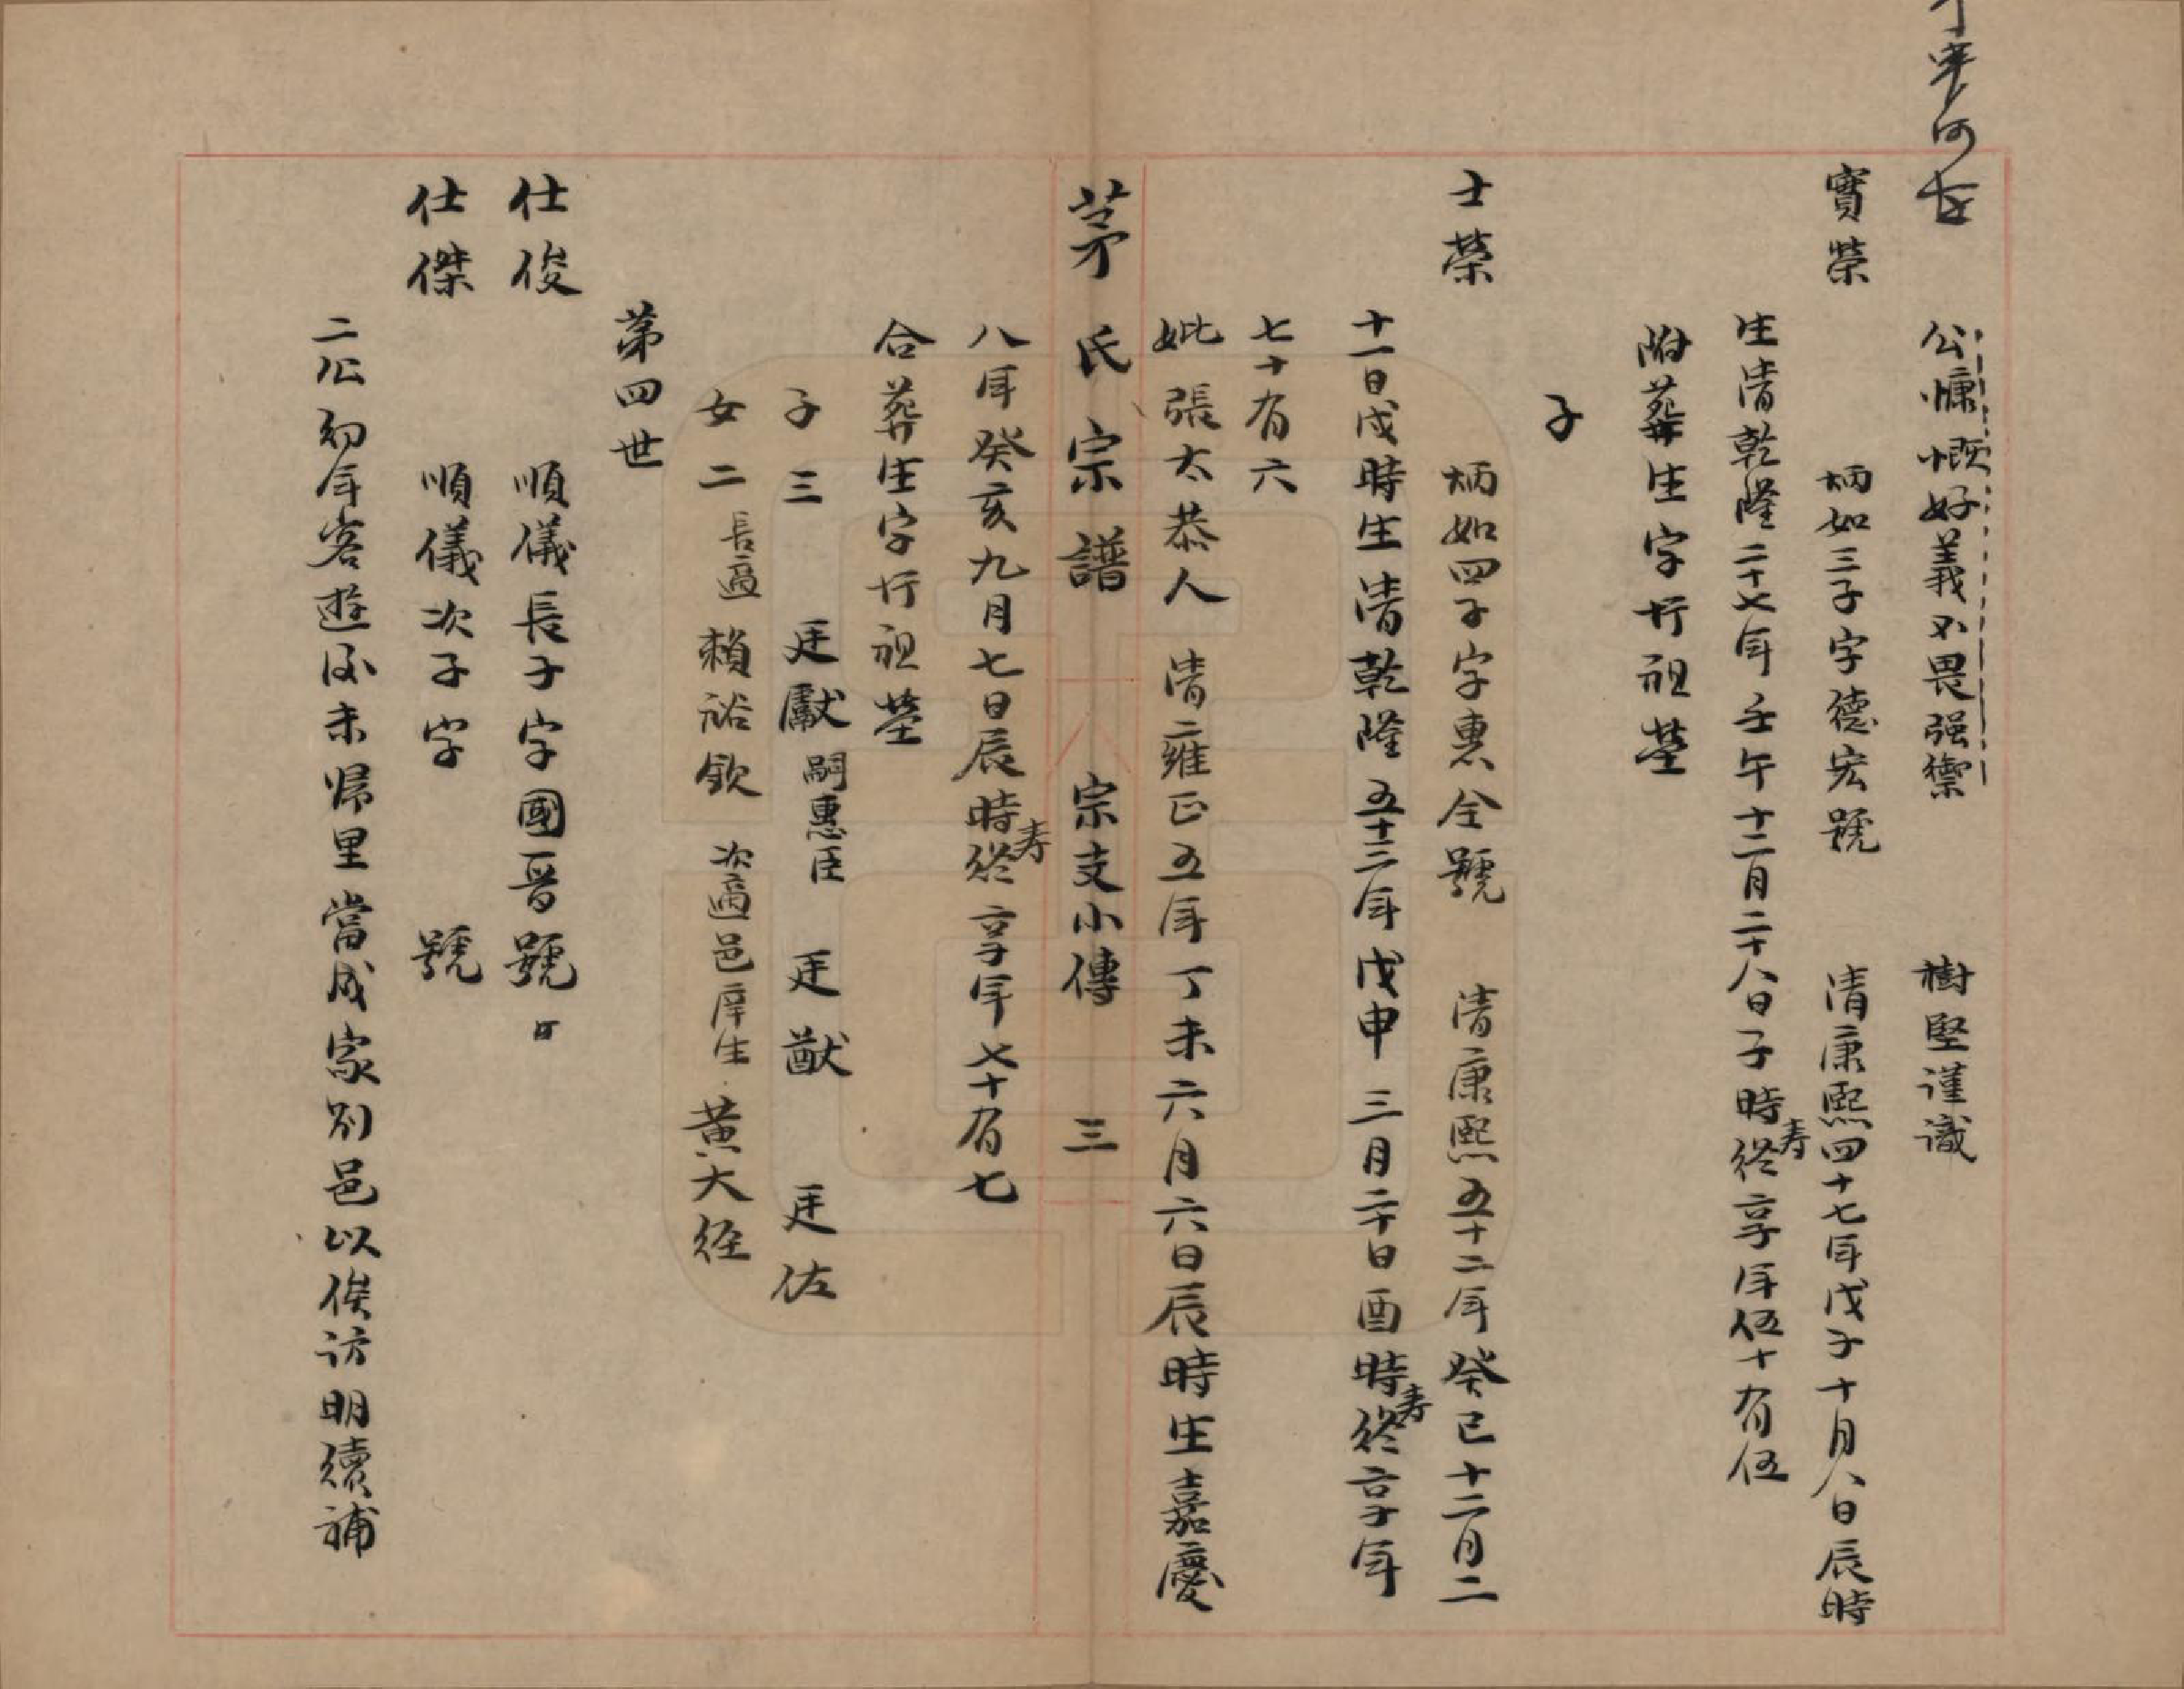 公慷慨好義不畏强禦　樹堅謹識
寶榮　炳如三子字德宏號　清康熙四十七年戊子十月八日辰時
生清乾隆二十七年壬午十二月二十八日子時寿終享年伍十有伍
附葬生字圩祖塋
子
士榮　炳如四子字惠全號　清康熙五十二年癸巳十二月二
十一日戌時生清乾隆五十三年戊申三月二十日酉時寿終享年
七十有六
妣張太恭人　清雍正五年丁未六月六日辰時生嘉慶
茅氏宗譜　宗支小傳　三
八年癸亥九月七日辰時寿終享年七十有七
合葬生字圩祖塋
子三　廷獻嗣惠臣　廷猷　廷佐
女二　長適賴裕欽　次適邑庠生黃大經
第四世
仕俊　順儀長子字國晋號
仕傑　順儀次子字　號
二公幼年客遊後未歸里當成家別邑以俟訪明續補